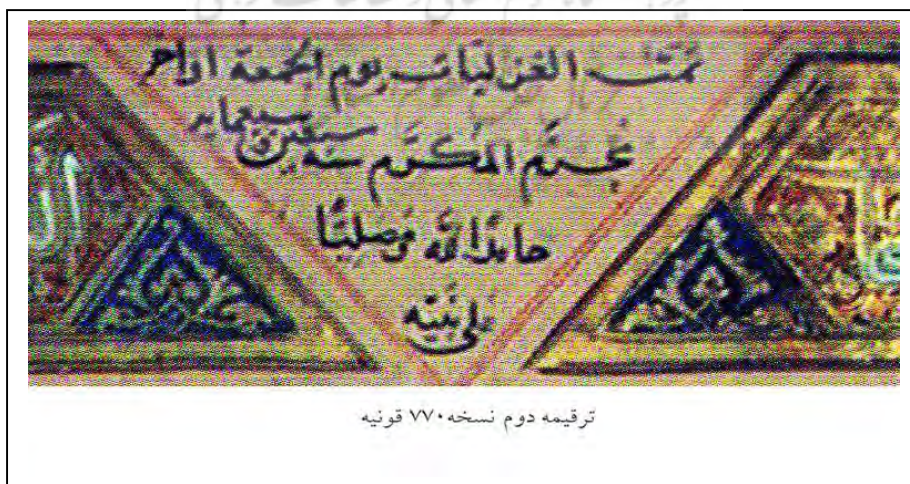 تمت الغزلیات یوم الجمعة اواخر
محرم المکرم سنه سبعین و سبعمایه
حامدا لله و مصلیًا
علی نبیّه
ترقیمه دوم نسخه ۷۷۰ قونیه